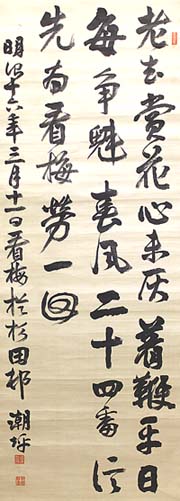 老去賞花心未灰着鞭平日
每争魁春風二十四番信
先為看梅勞一回
明治十六年三月十一日看梅於杉田邨 潮坪